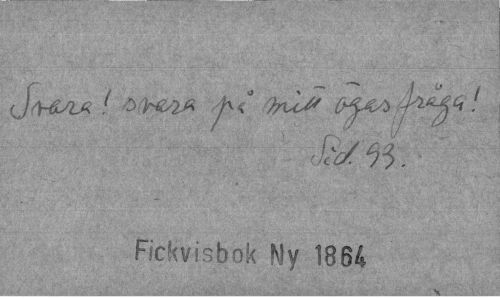 Svara! svara på mitt ögas fråga!
Sid. 93.
Fickvisbok Ny 1864